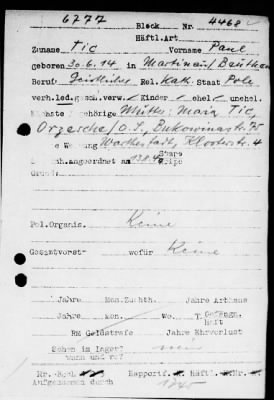 6777 Block Nr. 4468
Häftl.Art
Zuname Tic Vorname Paul
geboren 30.6.14 in Martinau/Beuthen
Beruf Geistlicher Rel. Kath. Staat Pole
verh.led.gesch.verw. Kinder ehel. unehel.
Nächste Angehörige Mutter: Maria Tic,
Orzesche/O.S., Bukowinastr. 75
Wachstadt, Klosterstr. 4
angeordnet am
Grund:
Pol.Organis. Keine
Gesamtvorstr wofür Keine
Jahre Mon.Zuchth. Jahre Arbhaus
Jahre, Mon. Wo. T. Gefängn. Haft
RM Geldstrafe Jahre Ehrverlust
Schon im Lager? nein
wann und wo?
Rapportf. Häftl. Nr.
Aufgenommen durch